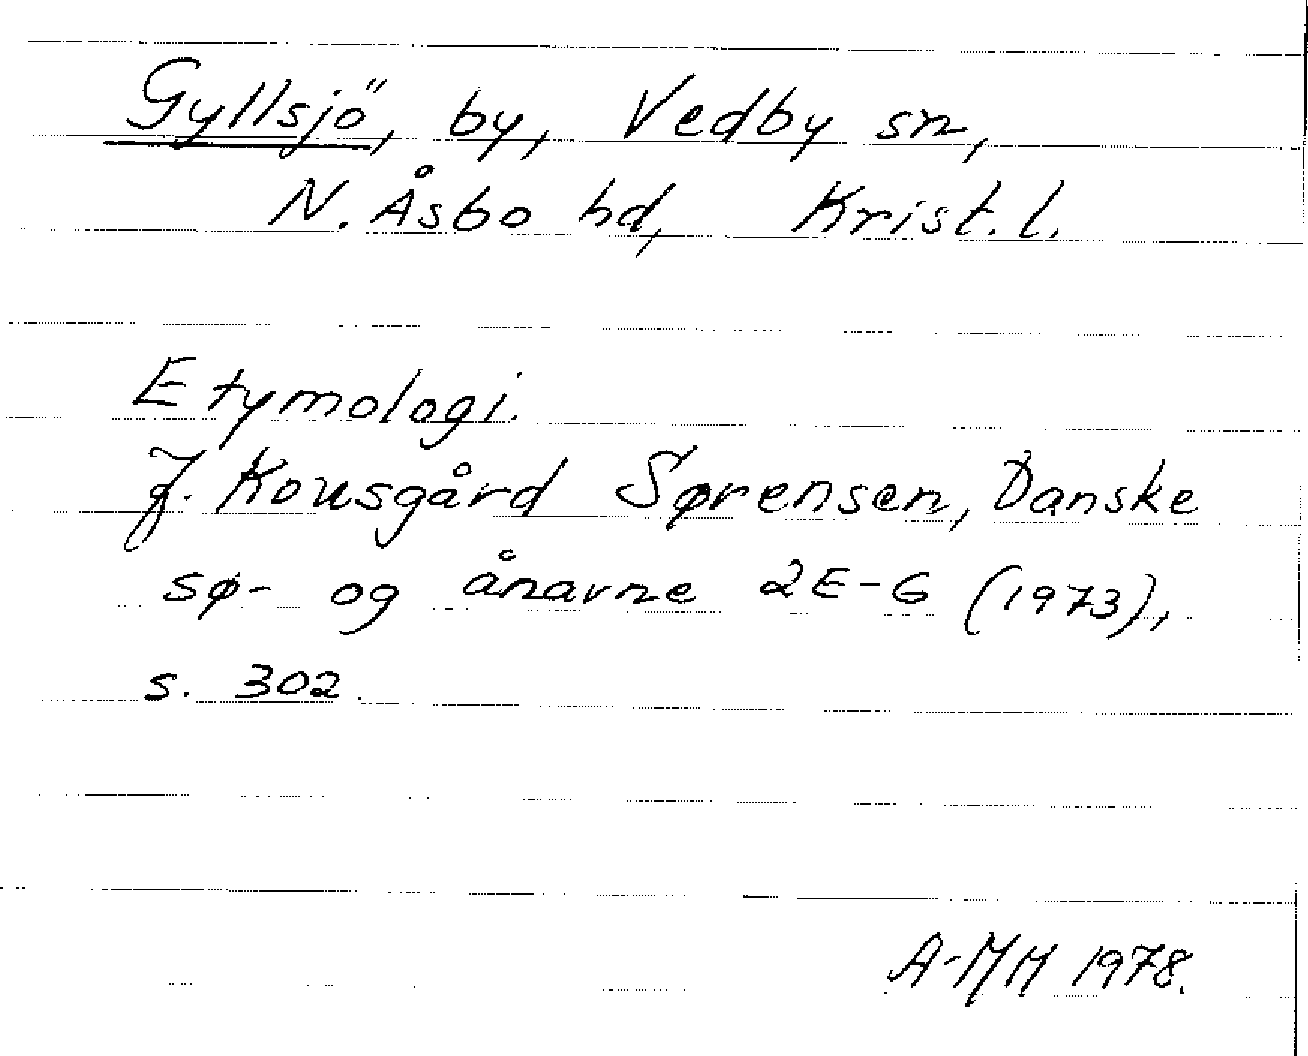 Gyllsjö, by, Vedby sn,
N. Åsbo hd, Krist. l.
Etymologi.
J. Kousgård Sørensen, Danske
sø- og ånavne 2E-G (1973),
s. 302.
A-MH 1978.